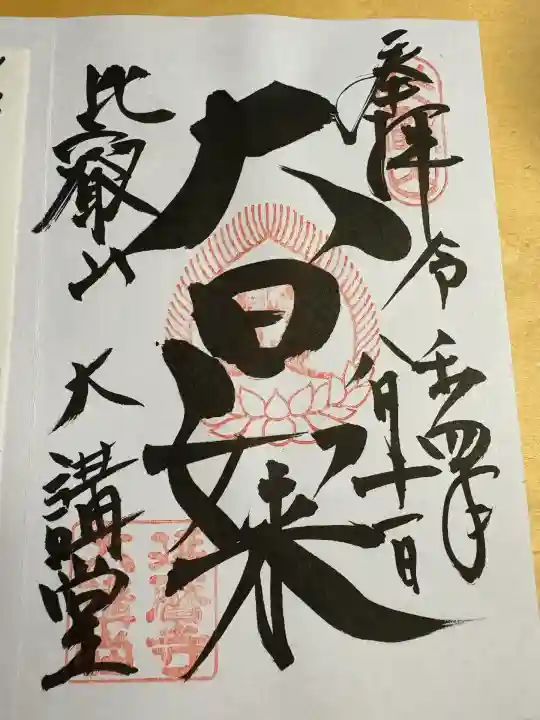 奉拝 令和四年
八月十一日
大日如来
比叡山 大講堂